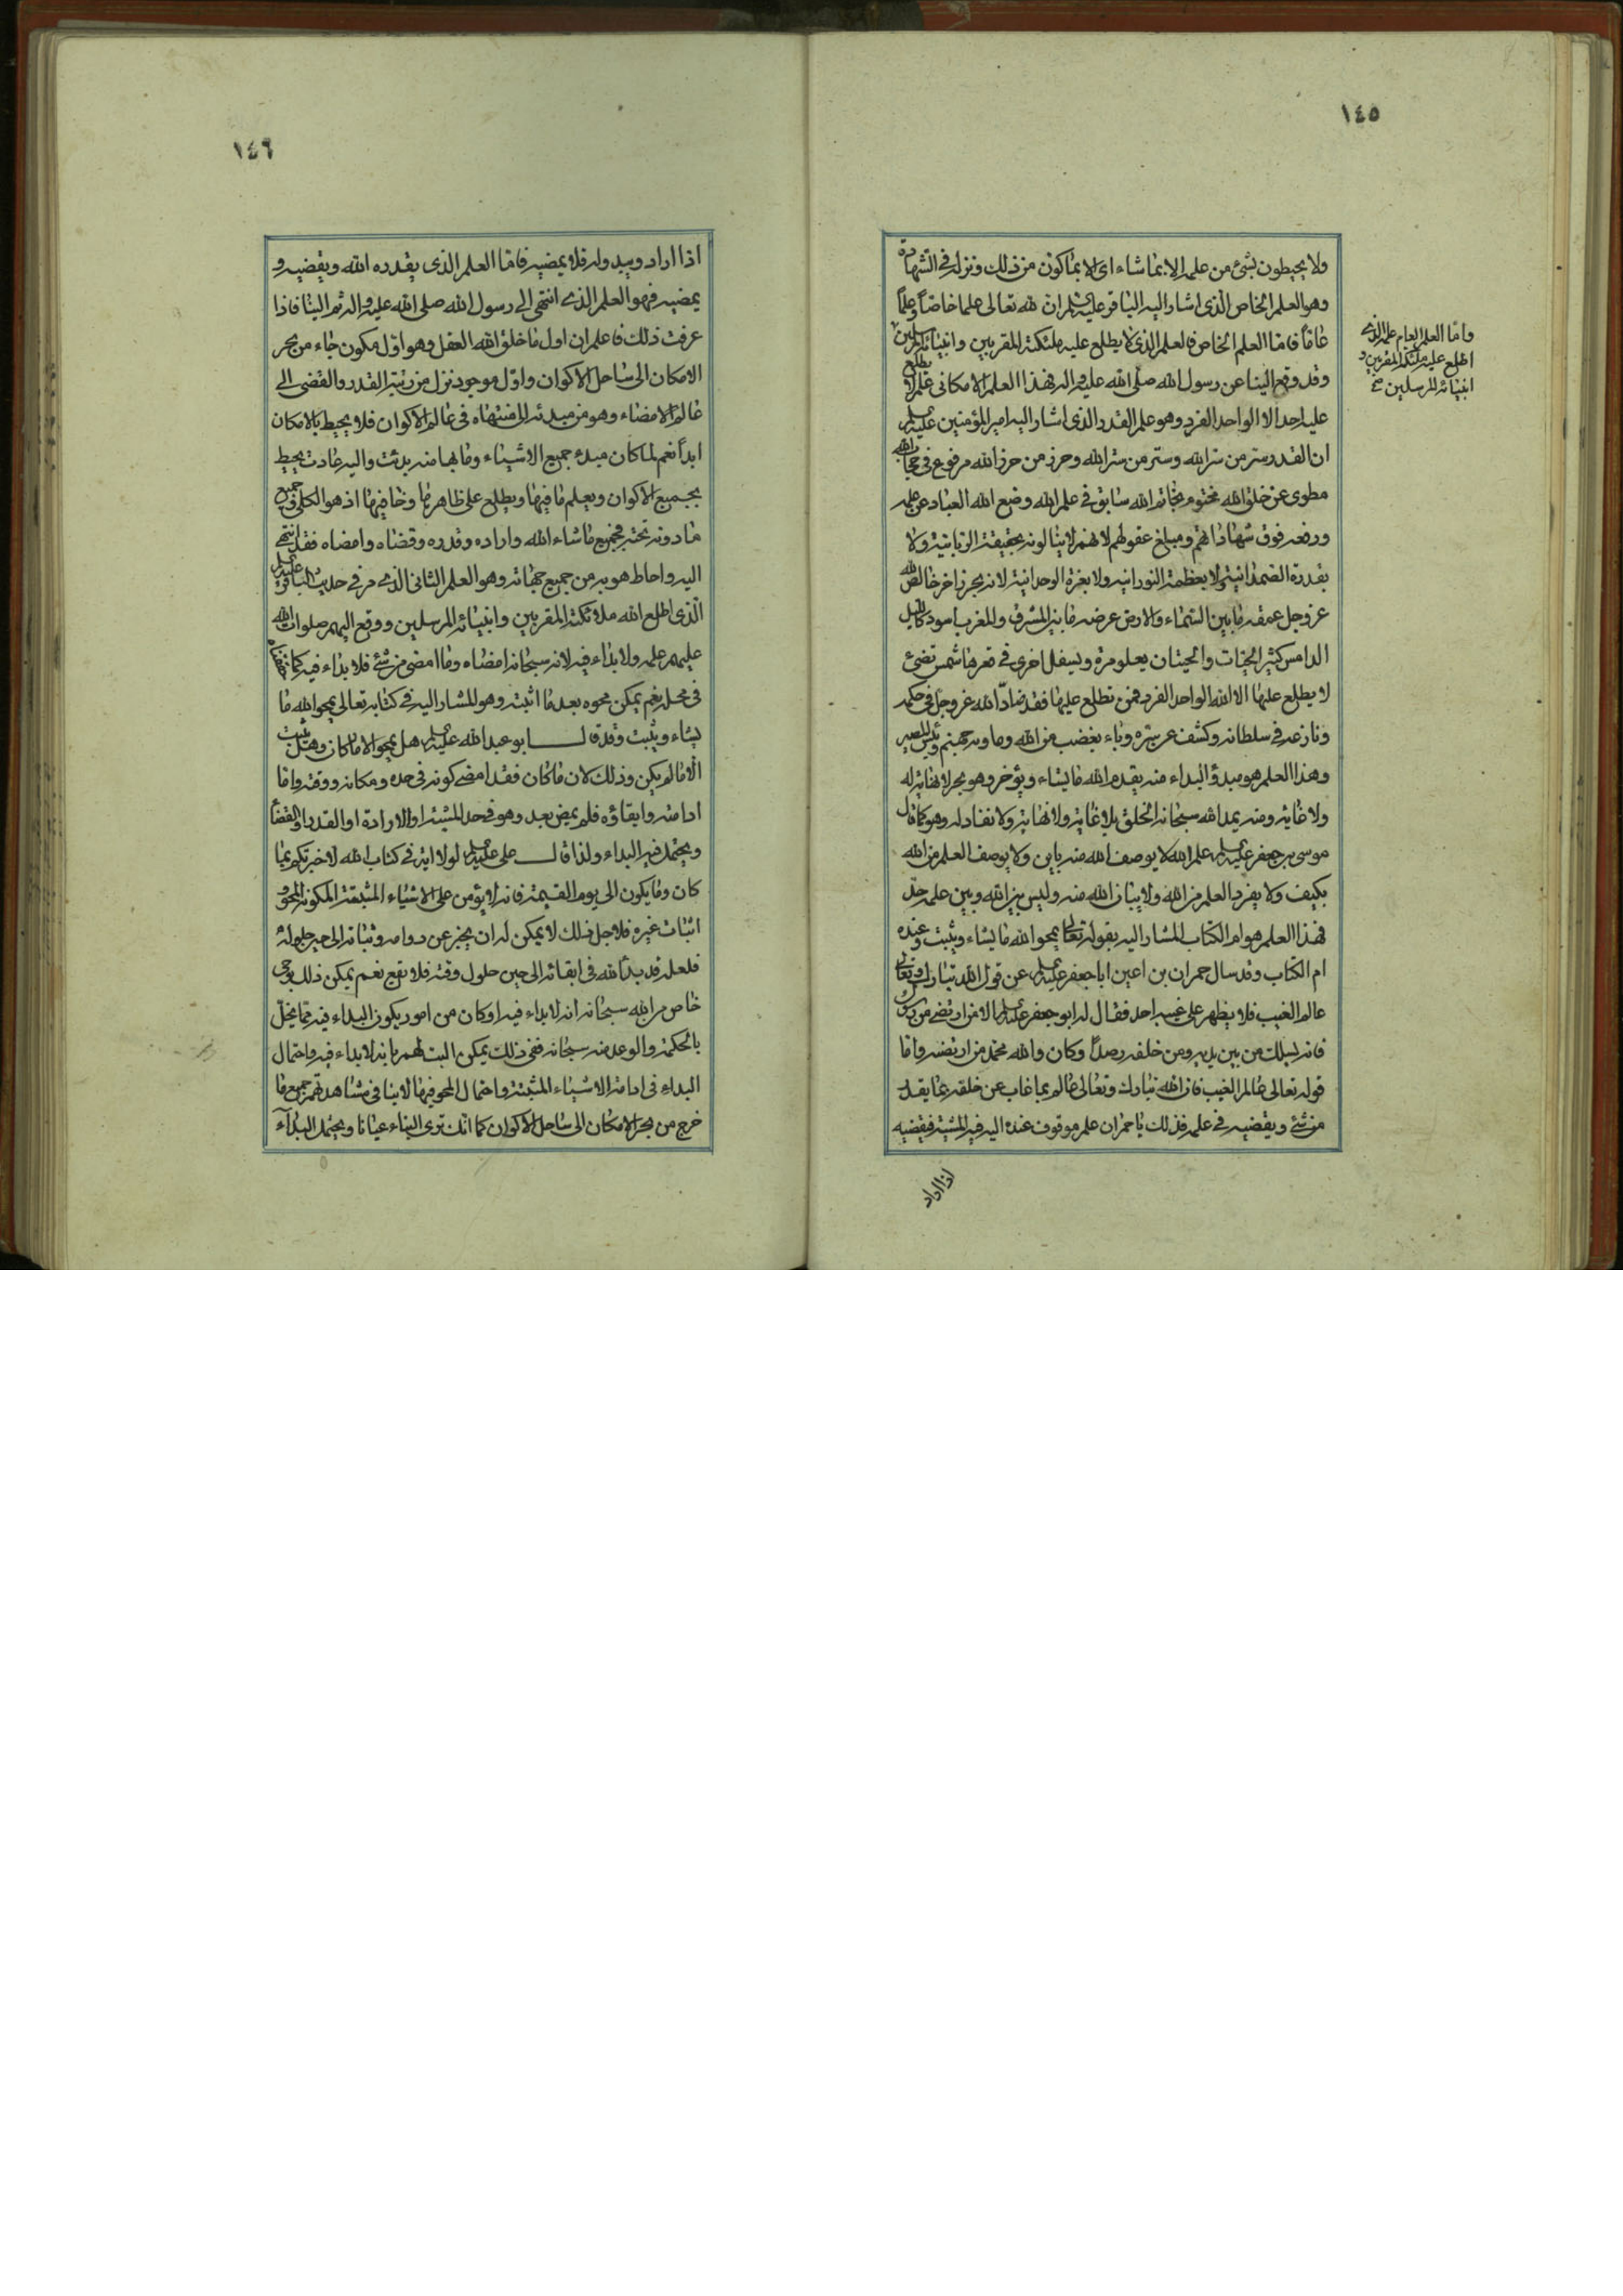 ١٤٥
ولا يحيطون بشئ من علمه الا بما شاء اى الا بما كون من ذلك ونزله فى الشهادة
وهو العلم الخاص الذى اشار اليه الباقر عليه السلم ان لله تعالى علما خاصا وعلما
عاما فاما العلم الخاص فالعلم الذى لا يطلع عليه ملئكته المقربين وانبيائه المرسلين
واما العلم العام علمه الذى
اطلع عليه ملئكته المقربين و
انبيائه المرسلين صح
وقد وقع الينا عن رسول الله صلى الله عليه واله فهذا العلم الامكانى علم لا يطلع
عليه احد الا الواحد الفرد وهو علم القدر الذى اشار اليه امير المؤمنين عليه السلم
ان القدر سر من سر الله وستر من ستر الله وحرز من حرز الله مرفوع فى حجاب الله
مطوى عن خلق الله مختوم بخاتم الله سابق فى علم الله وضع الله العباد عن علمه
ورفعه فوق شهاداتهم ومبلغ عقولهم لانهم لا ينالونه بحقيقة الربانية ولا
بقدرة الصمدانية ولا بعظمة النورانية ولا بعزة الوحدانية لانه بحر زاخر خالص لله
عز وجل عمقه ما بين السماء والارض عرضه ما بين المشرق والمغرب اسود كالليل
الدامس كثير الحيات والحيتان يعلو مرة ويسفل اخرى فى قعرها شمس تضئ
لا يطلع عليها الا الله الواحد الفرد فمن تطلع عليها فقد ضاد الله عز وجل فى حكمه
ونازعه فى سلطانه وكشف عن ستره وباء بغضب من الله وماويه جهنم وبئس المصير
وهذا العلم هو مبدؤ البداء منه يقدم الله ما يشاء ويؤخر وهو بحر لا نهاية له
ولا غاية ومنه يمد الله سبحانه الخلق بلا غاية ولا نهاية ولا نفاد له وهو كما قال
موسى بن جعفر عليه السلم علم الله لا يوصف الله منه باين ولا يوصف العلم من الله
بكيف ولا يفرد العلم من الله ولا يبان الله منه وليس بين الله وبين علمه حد
فهذا العلم هو ام الكتاب المشار اليه بقوله تعالى يمحو الله ما يشاء ويثبت وعنده
ام الكتاب وقد سال حمران بن اعين ابا جعفر عليه السلم عن قول الله تبارك وتعالى
عالم الغيب فلا يظهر على غيبه احد فقال له ابو جعفر عليه السلم الا من ارتضى من رسول
فانه يسلك من بين يديه ومن خلفه رصدا وكان والله محمد من ارتضيه واما
قوله تعالى عالم الغيب فان الله تبارك وتعالى عالم بما غاب عن خلقه بما يقدر
من شئ ويقضيه فى علمه فذلك يا حمران علم موقوف عنده اليه فيه المشية فيقضيه
اذا اراد
١٤٦
اذا اراد ويبدو له فلا يمضيه فاما العلم الذى يقدره الله ويقضيه و
يمضيه فهو العلم الذى انتهى الى رسول الله صلى الله عليه واله ثم الينا فاذا
عرفت ذلك فاعلم ان اول ما خلق الله العقل وهو اول مكون جاء من بحر
الامكان الى ساحل الاكوان واول موجود نزل من رتبة القدر والقضى الى
عالم الامضاء وهو من مبدئه الى منتهاه فى عالم الاكوان فلا يحيط بالامكان
ابدا نعم لما كان مبدء جميع الاشياء وما بها منه بدئت واليه عادت يحيط
بجميع الاكوان ويعلم ما فيها ويطلع على ظاهرها وخافيها اذ هو الكلى وجميع
ما دونه تحته فجميع ما شاء الله واراده وقدره وقضاه وامضاه فقد انتهى
اليه واحاط هو به من جميع جهاته وهو العلم الثانى الذى مر فى حديث الباقر عليه السلم
الذى اطلع الله ملائكته المقربين وانبيائه المرسلين ووقع اليهم صلوات الله
عليهم علمه ولا بداء فيه لانه سبحانه امضاه وما امضى من شئ فلا بداء فيه كما
فى محله نعم يمكن محوه بعد ما اثبته وهو المشار اليه فى كتابه تعالى يمحو الله ما
يشاء ويثبت وقد قال ابو عبد الله عليه السلم هل يمحو الا ما كان وهل يثبت
الا ما لم يكن وذلك لان ما كان فقد امضى كونه فى حده ومكانه ووقته واما
ادامته وابقاؤه فلم يمض بعد وهو فى حد المشية او الارادة او القدر او القضاء
ويحتمل فيه البداء ولذا قال على عليه السلم لولا اية فى كتاب الله لاخبرتكم بما
كان وما يكون الى يوم القيمة فانه لا يؤمن على الاشياء المثبتة المكونة المحو و
اثبات غيره فلاجل ذلك لا يمكن له ان يخبر عن دوامه وثباته الى حين حلوله
فلعله قد بدا لله فى ابقائه الى حين حلول وقته فلا يقع نعم يمكن ذلك بوحى
خاص من الله سبحانه انه لا بداء فيه او كان من امور يكون البداء فيه مما يخل
بالحكمة والوعد منه سبحانه ففى ذلك يمكن البت لهم بانه لا بداء فيه واحتمال
البداء فى ادامة الاشياء المثبتة واحتمال المحو فيها لا ينافى مشاهدتهم جميع ما
خرج من بحر الامكان الى ساحل الاكوان كما انك ترى البناء عيانا ويحتمل البداء